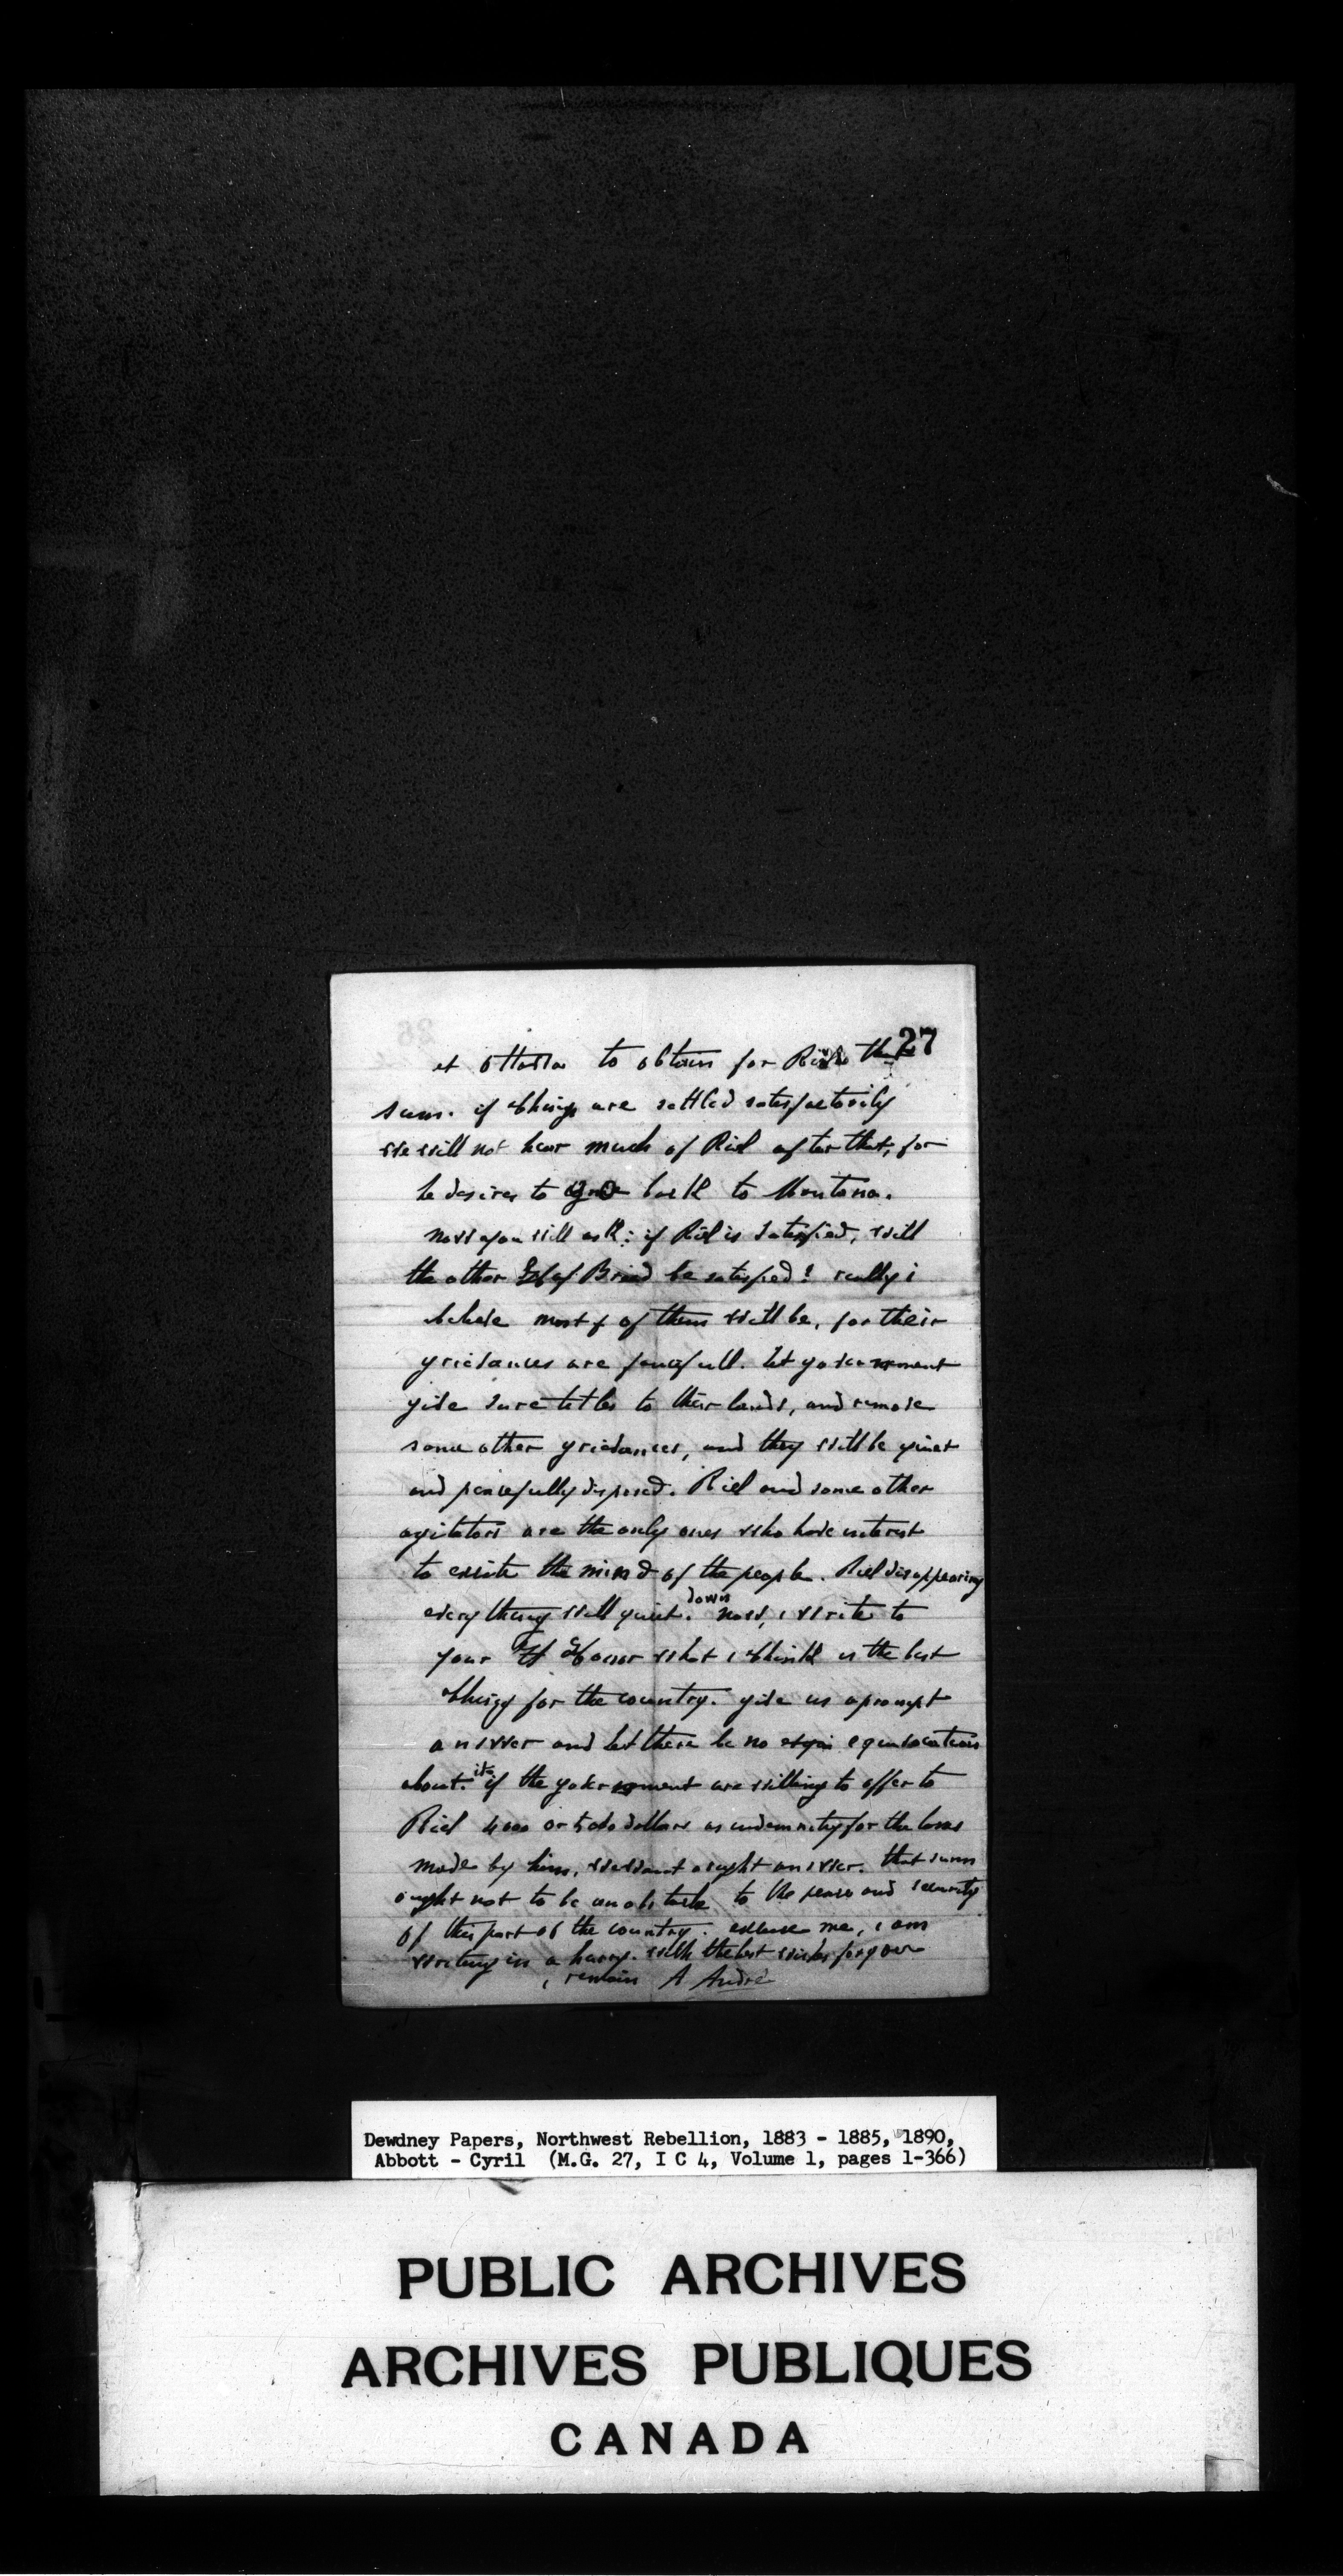 27
at Ottawa to obtain for Riel that
sum. if things are settled satisfactorily
we will not hear much of Riel after that, for
he desires to go back to Montana.
now you will ask: if Riel is satisfied, will
the other Half Breed be satisfied! really i
believe most of them will be, for their
grievances are fancifull. let government
give sure titles to their lands, and remove
some other grievances, and they will be quiet
and peacefully disposed. Riel and some other
agitators are the only ones who have interest
to excite the mind of the people. Riel disappearing
every thing will quiet down. now, i write to
your Honor what i think is the best
thing for the country. give us a prompt
answer and let there be no equivocation
about it. if the government are willing to offer to
Riel 4000 or 5000 dollars as indemnity for the losses
made by him, we want a answer. that sum
ought not to be an obstacle to the peace and security
of this part of the country. excuse me, i am
writing in a hurry. with the best wishes for your
i remain A André
Dewdney Papers, Northwest Rebellion, 1883 - 1885, 1890,
Abbott - Cyril (M.G. 27, I C 4, Volume 1, pages 1-366)
PUBLIC ARCHIVES
ARCHIVES PUBLIQUES
CANADA